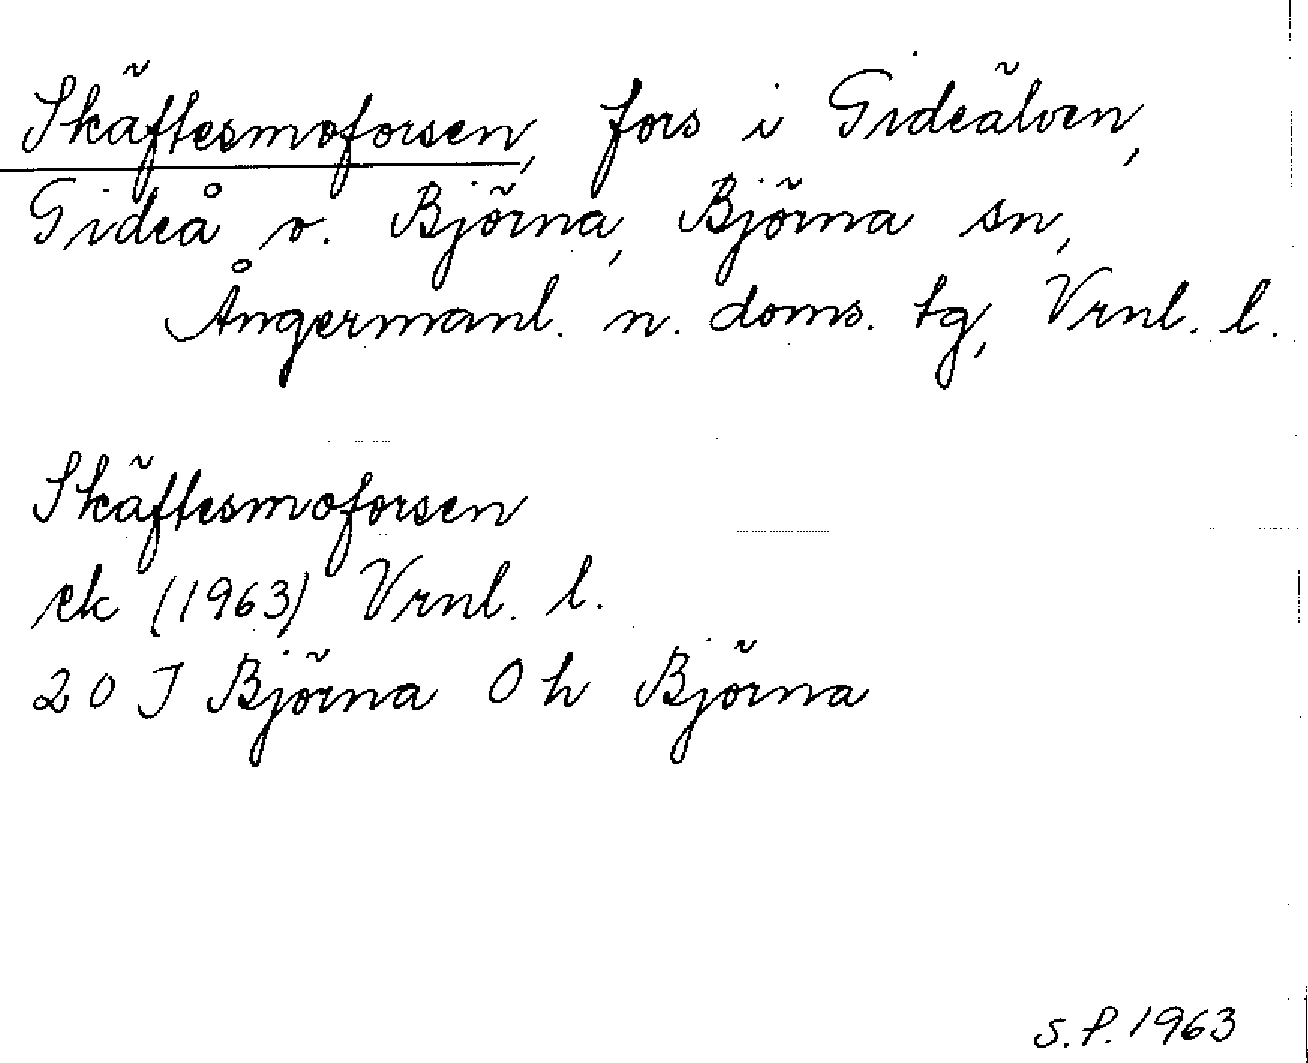 Skäftesmoforsen, fors i Gideälven,
Gideå o. Björna, Björna sn,
Ångermanl. n. doms. tg, Vrnl. l.
Skäftesmoforsen
ek (1963) Vrnl. l.
20 J Björna 0 h Björna
S.P. 1963